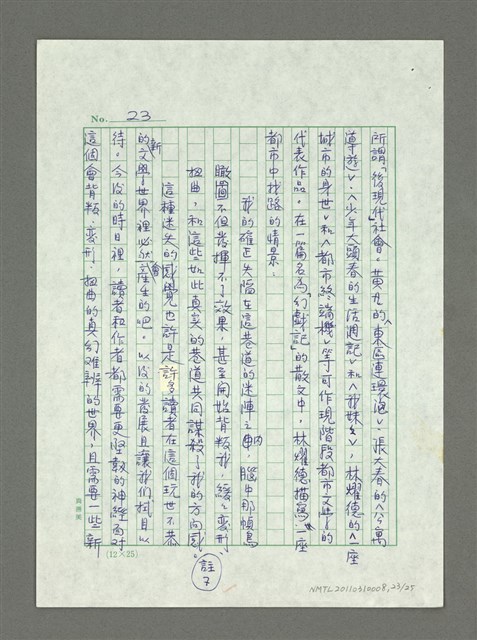 No. 23
所謂「後現代」社會。黃凡的〈東區連環泡〉、張大春的〈公寓
導遊〉、〈少年大頭春的生活週記〉和〈我妹妹〉,林燿德的〈一座
城市的身世〉和〈都市終端機〉等可作現階段都市文學的
代表作品。在一篇名為「幻戲記」的散文中,林燿德描寫在一座
都市中找路的情景:
我的確正失陷在這巷道的迷陣之內,腦中那幀鳥
瞰圖不但發揮不了效果,甚至開始背叛我,緩緩變形、
扭曲,和這些如此真實的巷道共同謀殺了我的方向感。
註7
這種迷失的感覺也許是許多讀者在這個玩世不恭
的新文學世界裡必然會產生的吧。以後的發展且讓我們拭目以
待。今後的時日裡,讀者和作者都需要更堅毅的神經面對
這個會背叛、變形、扭曲的真幻難辨的世界,且需要一些新
(12×25)
NMTL20110310008,23/25